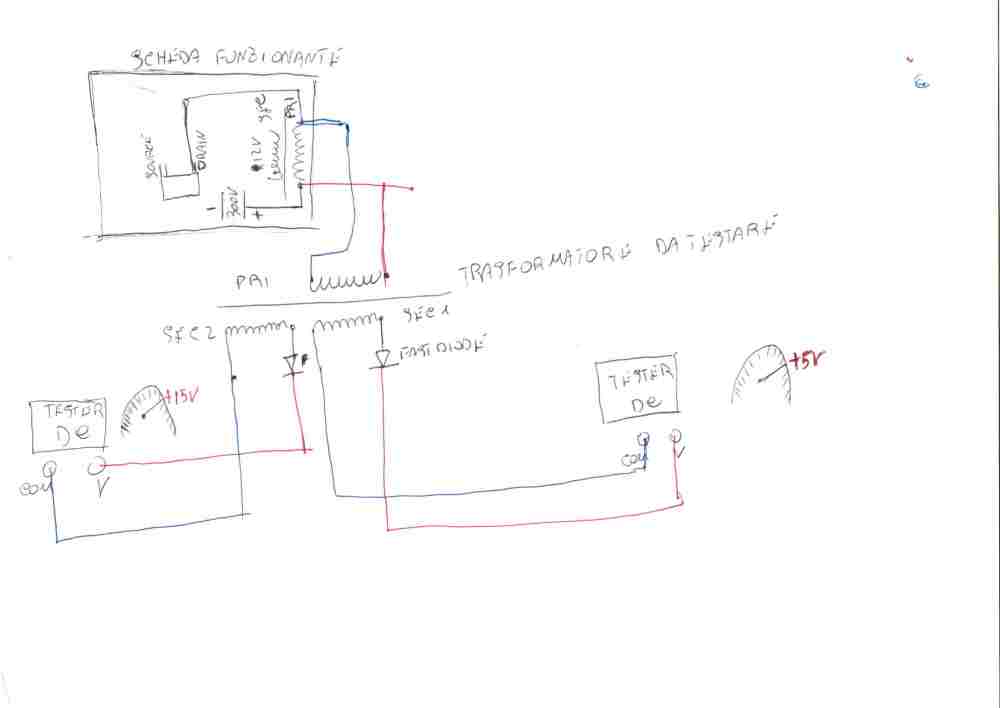 SCHEDA FUNZIONANTE
SOURCE
DRAIN
+12V
SEC
PRI
- 300V +
PRI
TRASFORMATORE DA TESTARE
SEC2
SEC1
FAST DIODE
+15V
TESTER
DC
COM
V
TESTER
DC
+5V
COM
V